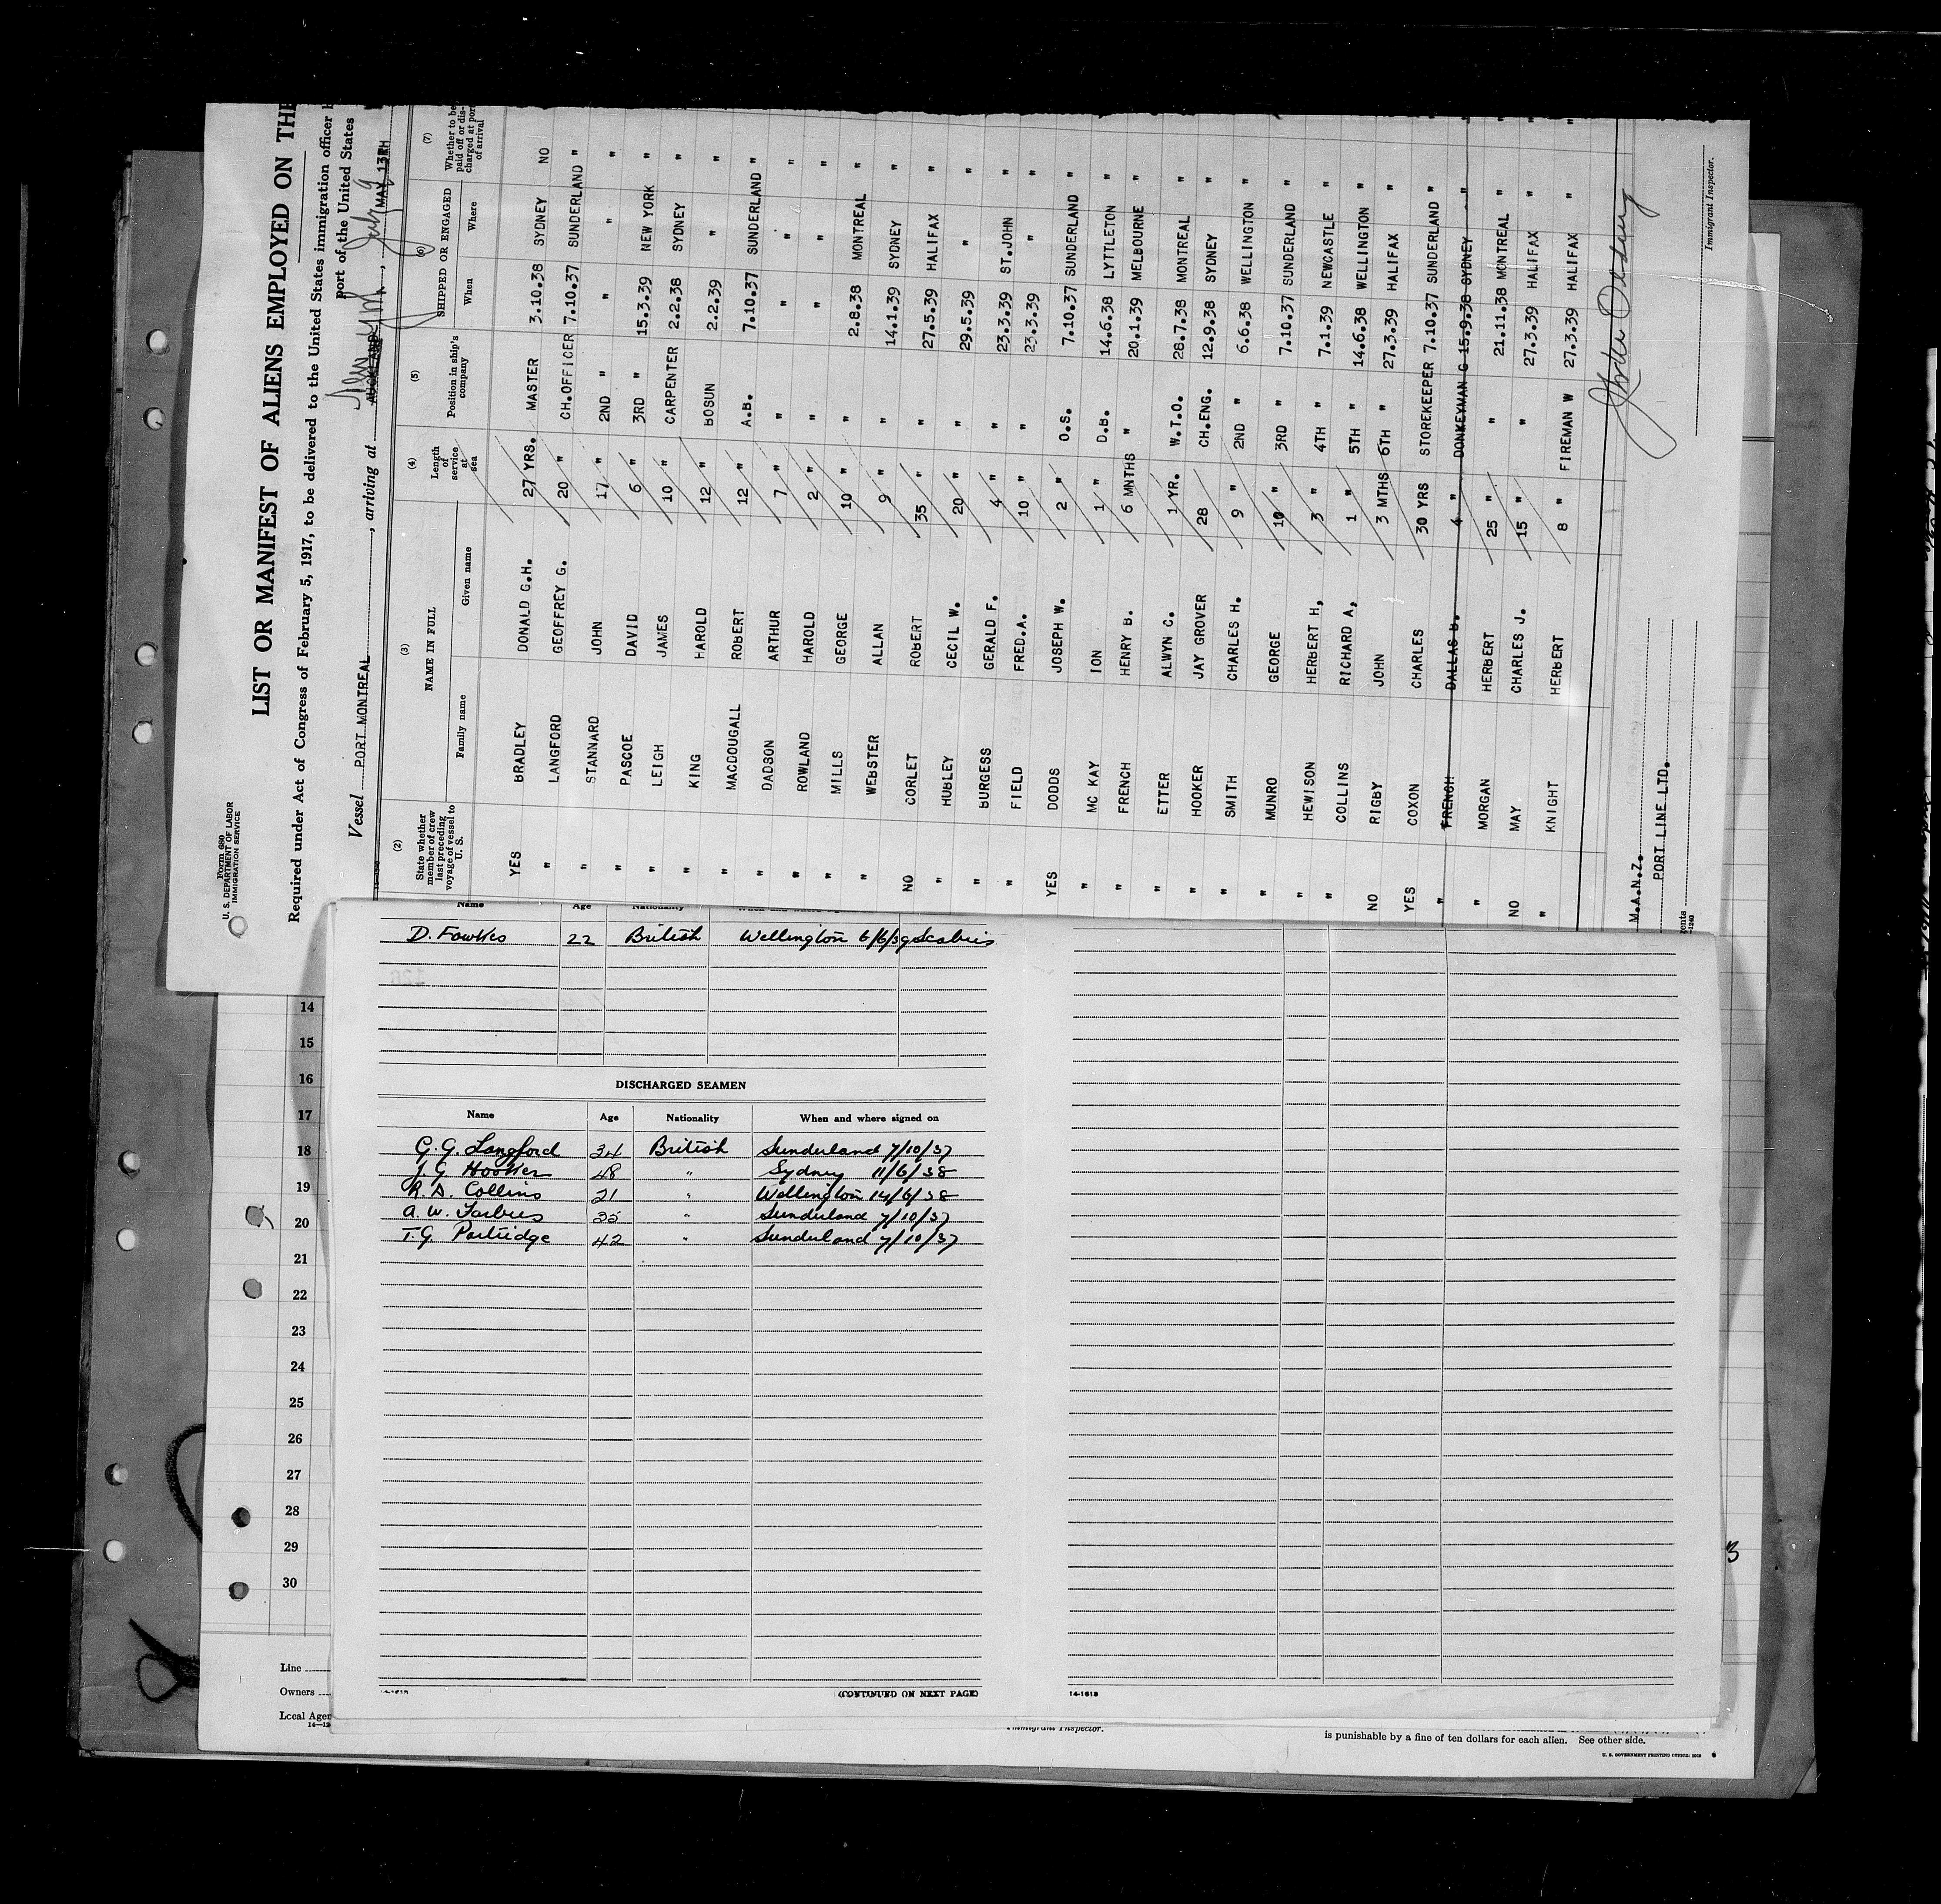 Form 689
U. S. DEPARTMENT OF LABOR
IMMIGRATION SERVICE
LIST OR MANIFEST OF ALIENS EMPLOYED ON THE
Required under Act of Congress of February 5, 1917, to be delivered to the United States immigration officer
port of the United States
Vessel PORT MONTREAL, arriving at AUCKLAND, MAY 13TH
(2) (3) (4) (5) (6) (7)
State whether member of crew last preceding voyage of vessel to U. S. NAME IN FULL Length of service at sea Position in ship's company SHIPPED OR ENGAGED Whether to be paid off or discharged at port of arrival
Family name Given name When Where
YES BRADLEY DONALD C.H. 27 YRS. MASTER 3.10.38 SYDNEY NO
" LANGFORD GEOFFREY G. 20 " CH.OFFICER 7.10.37 SUNDERLAND "
" STANNARD JOHN 17 " 2ND " " " "
" PASCOE DAVID 6 " 3RD " 15.3.39 NEW YORK "
" LEIGH JAMES 10 " CARPENTER 2.2.38 SYDNEY "
" KING HAROLD 12 " BOSUN 2.2.39 " "
" MACDOUGALL ROBERT 12 " A.B. 7.10.37 SUNDERLAND "
" DADSON ARTHUR 7 " " " " "
" ROWLAND HAROLD 2 " " " " "
" MILLS GEORGE 10 " " 2.8.38 MONTREAL "
" WEBSTER ALLAN 9 " " 14.1.39 SYDNEY "
NO CORLET ROBERT 35 " " 27.5.39 HALIFAX "
" HUBLEY CECIL W. 20 " " 29.5.39 " "
" BURGESS GERALD F. 4 " " 23.3.39 ST.JOHN "
" FIELD FRED.A. 10 " " 23.3.39 " "
YES DODDS JOSEPH W. 2 " O.S. 7.10.37 SUNDERLAND "
" MC KAY ION 1 " D.B. 14.6.38 LYTTLETON "
" FRENCH HENRY B. 6 MNTHS " 20.1.39 MELBOURNE "
" ETTER ALWYN C. 1 YR. W.T.O. 28.7.38 MONTREAL "
" HOOKER JAY GROVER 28 CH.ENG. 12.9.38 SYDNEY "
" SMITH CHARLES H. 9 " 2ND " 6.6.38 WELLINGTON "
" MUNRO GEORGE 10 " 3RD " 7.10.37 SUNDERLAND "
" HEWISON HERBERT H, 3 " 4TH " 7.1.39 NEWCASTLE "
" COLLINS RICHARD A, 1 " 5TH " 14.6.38 WELLINGTON "
NO RIGBY JOHN 3 MTHS 6TH " 27.3.39 HALIFAX "
YES COXON CHARLES 30 YRS STOREKEEPER 7.10.37 SUNDERLAND "
" FRENCH DALLAS B. 4 " DONKEYMAN G 15.9.38 SYDNEY "
" MORGAN HERBERT 25 " " 21.11.38 MONTREAL "
NO MAY CHARLES J. 15 " " 27.3.39 HALIFAX "
" KNIGHT HERBERT 8 " FIREMAN W 27.3.39 HALIFAX "
M.A.N.Z.
PORT LINE LTD.
Immigrant Inspector.
Name Age Nationality
D. Fowkes 22 British Wellington 6/6/39 Scabies
DISCHARGED SEAMEN
Name Age Nationality When and where signed on
G. G. Langford 34 British Sunderland 7/10/37
J. G. Hooker 48 " Sydney 11/6/38
R. A. Collins 21 " Wellington 14/6/38
A. W. 35 " Sunderland 7/10/37
T. G. Partridge 42 " Sunderland 7/10/37
(CONTINUED ON NEXT PAGE)
14-1613
14
15
16
17
18
19
20
21
22
23
24
25
26
27
28
29
30
Line
Owners
Local Agen
Immigrant Inspector.
is punishable by a fine of ten dollars for each alien. See other side.
U. S. GOVERNMENT PRINTING OFFICE
3